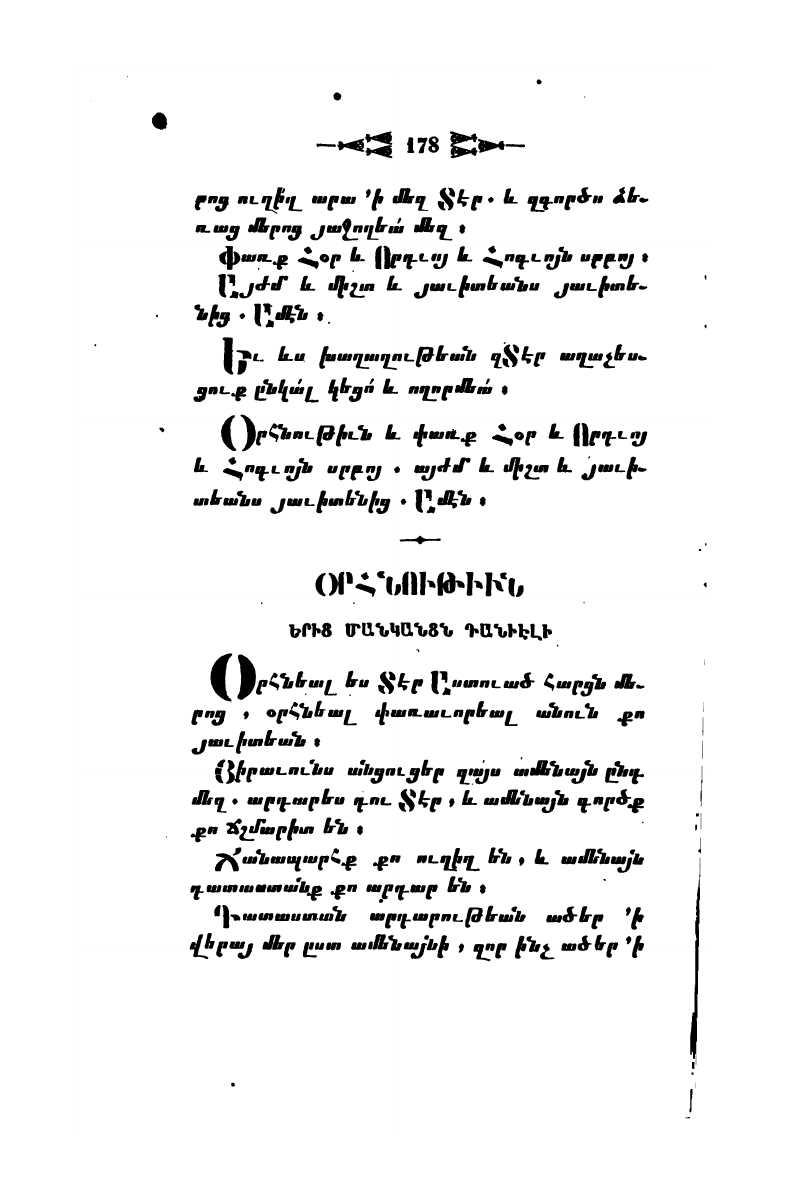 178
րոց ուղիղ արա ՚ի մեզ Տէր. և զգործս ձե-
ռաց մերոց յաջողեա՛ մեզ :
Փառք Հօր և Որդւոյ և Հոգւոյն սրբոյ :
Այժմ և միշտ և յաւիտեանս յաւիտե-
նից . Ամէն :
Եւ ևս խաղաղութեան զՏէր աղաչես-
ցուք ընկա՛լ կեցո՛ և ողորմեա՛ :
Օրհնութիւն և փառք Հօր և Որդւոյ
և Հոգւոյն սրբոյ . այժմ և միշտ և յաւի-
տեանս յաւիտենից . Ամէն :
ՕՐՀՆՈՒԹԻՒՆ
ԵՐԻՑ ՄԱՆԿԱՆՑՆ ԴԱՆԻԷԼԻ
Օրհնեալ ես Տէր Աստուած հարցն մե-
րոց , օրհնեալ փառաւորեալ անուն քո
յաւիտեան :
Ճիրաւունս անցուցեր զայս ամենայն ընդ
մեզ . արդարես դու Տէր , և ամենայն գործք
քո ճշմարիտ են :
Ճանապարհք քո ուղիղ են , և ամենայն
դատաստանք քո արդար են :
Դատաստան արդարութեան ածեր ՚ի
վերայ մեր ըստ ամենայնի , զոր ինչ ածեր ՚ի